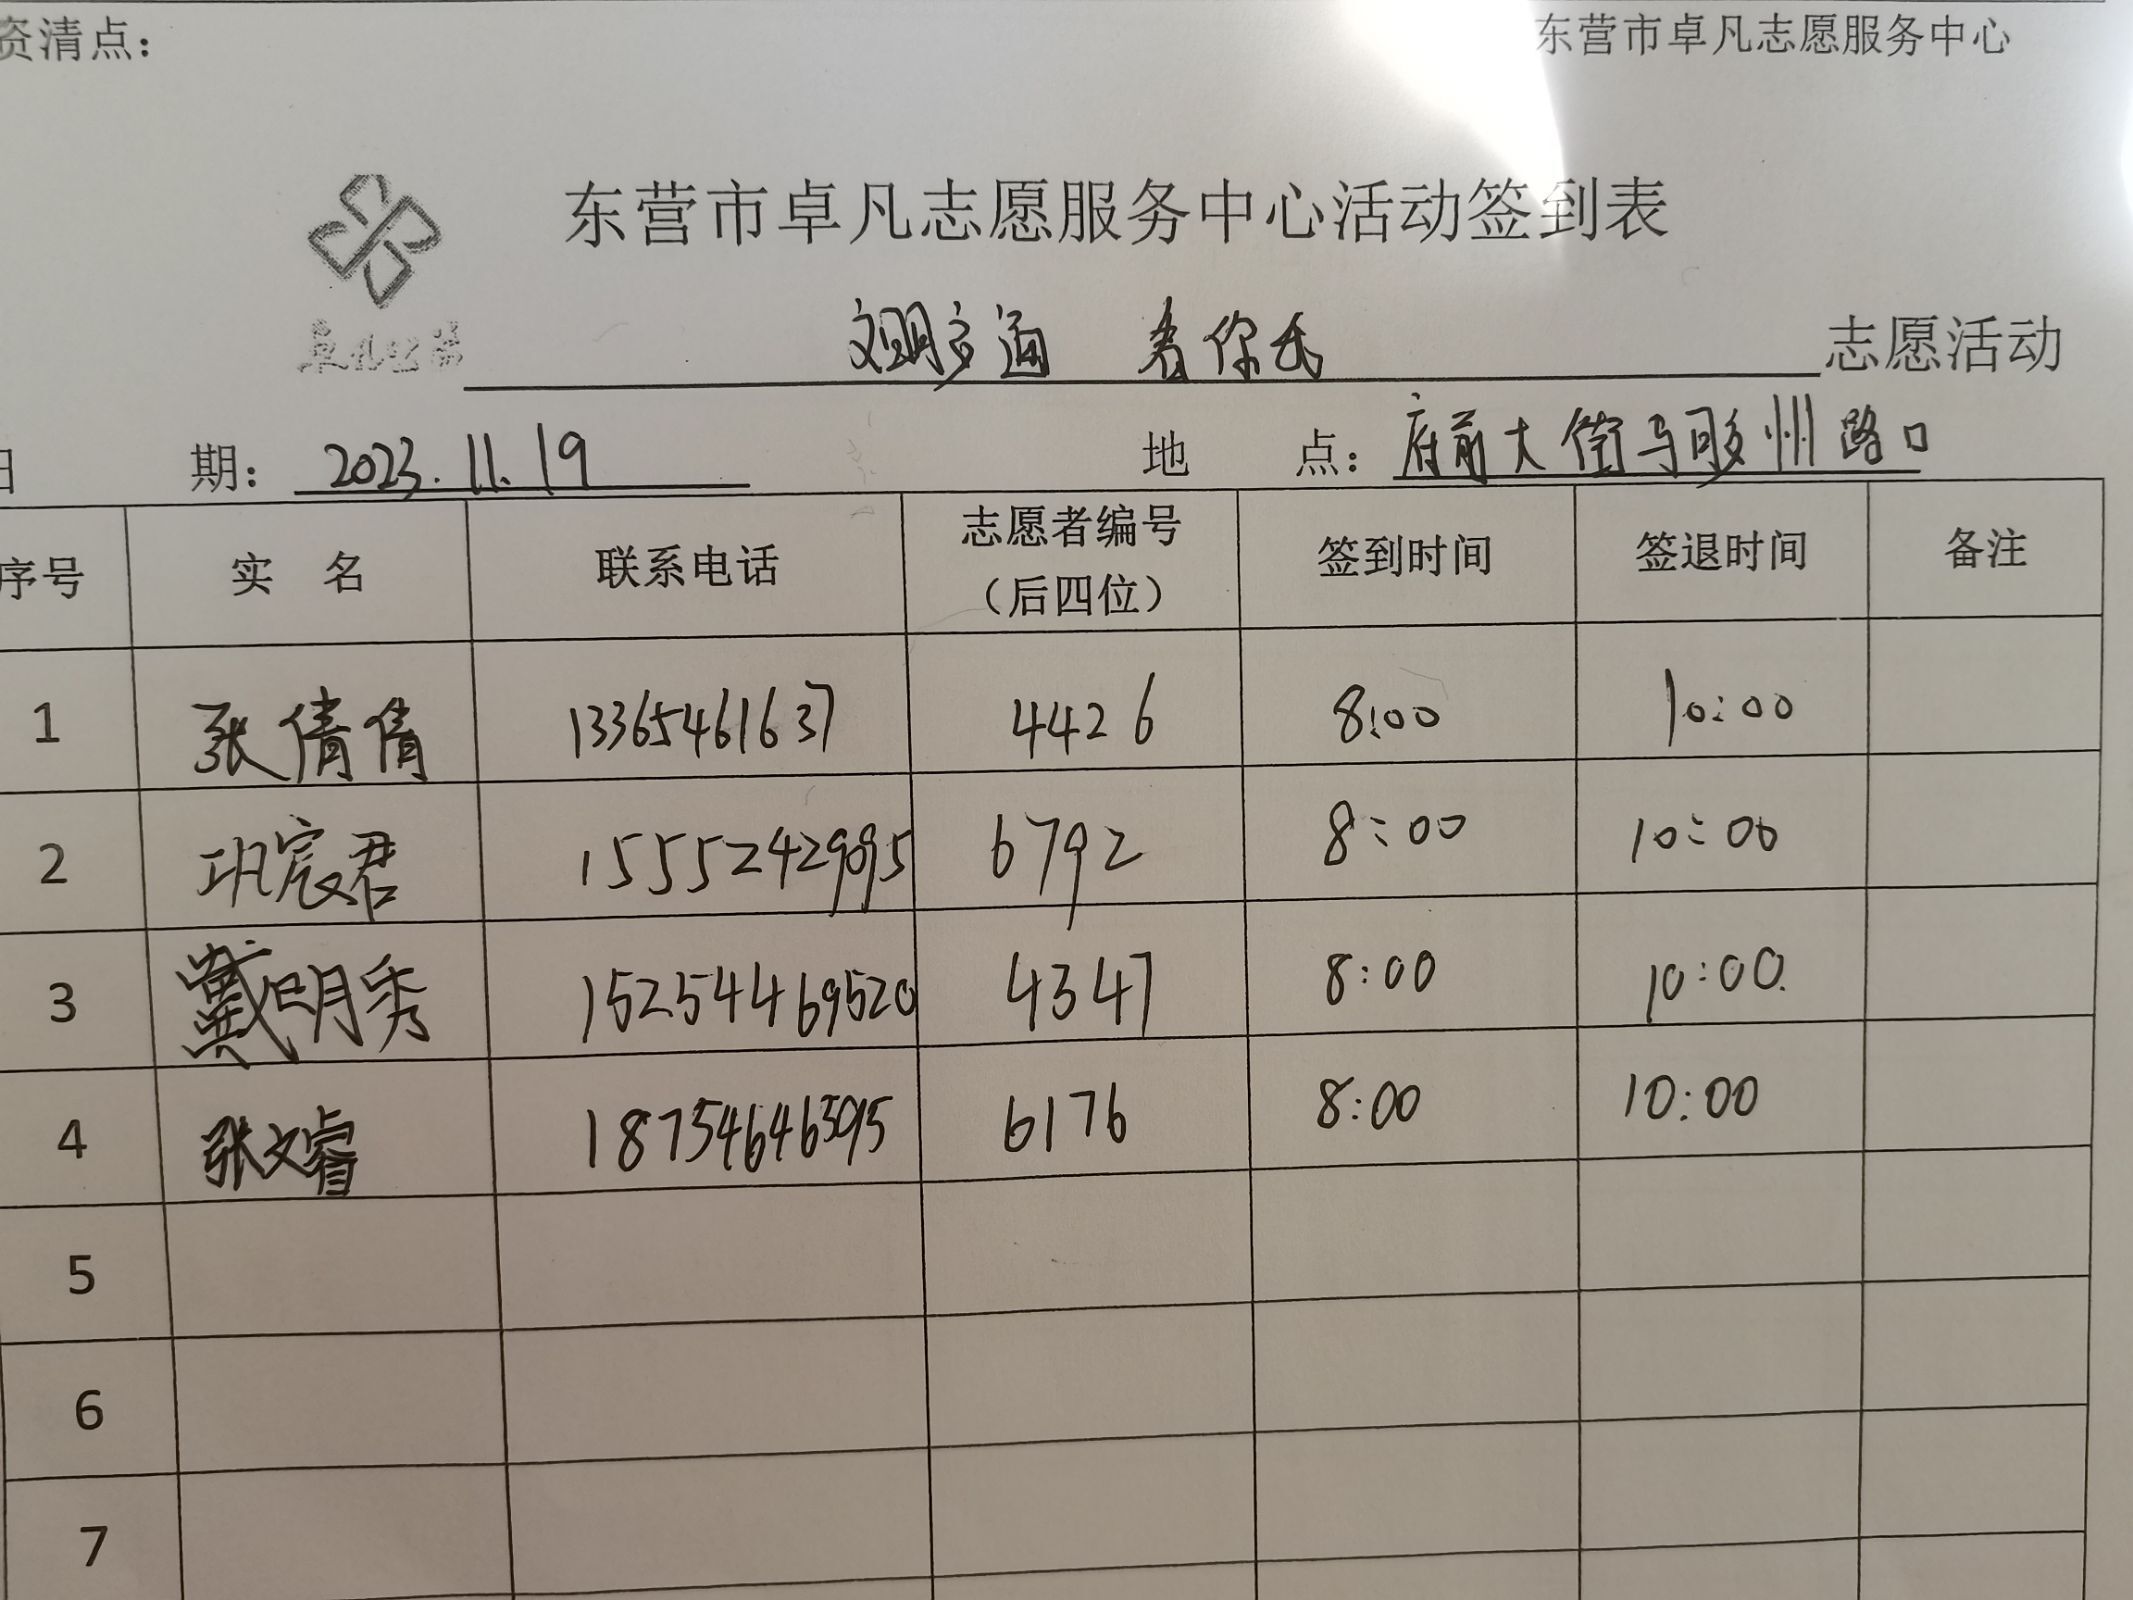 资清点： 东营市卓凡志愿服务中心
东营市卓凡志愿服务中心活动签到表
文明交通 志愿活动
期： 2023.11.19 地 点： 府前大街与胶州路口
序号 实 名 联系电话 志愿者编号（后四位） 签到时间 签退时间 备注
1 张倩倩 13365461637 4426 8:00 10:00
2 巩宸君 15552429095 6792 8:00 10:00
3 戴明秀 15254469520 4347 8:00 10:00
4 张文睿 6176 8:00 10:00
5
6
7